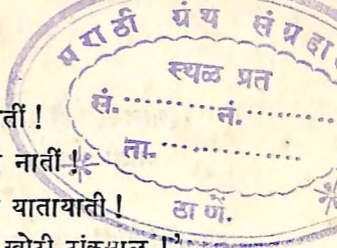 मराठी ग्रंथ संग्रहा
स्थळ प्रत
सं. .............. नं. ..............
ता. ..............
ठाणें.
तीं !
नातीं !
यातायाती !